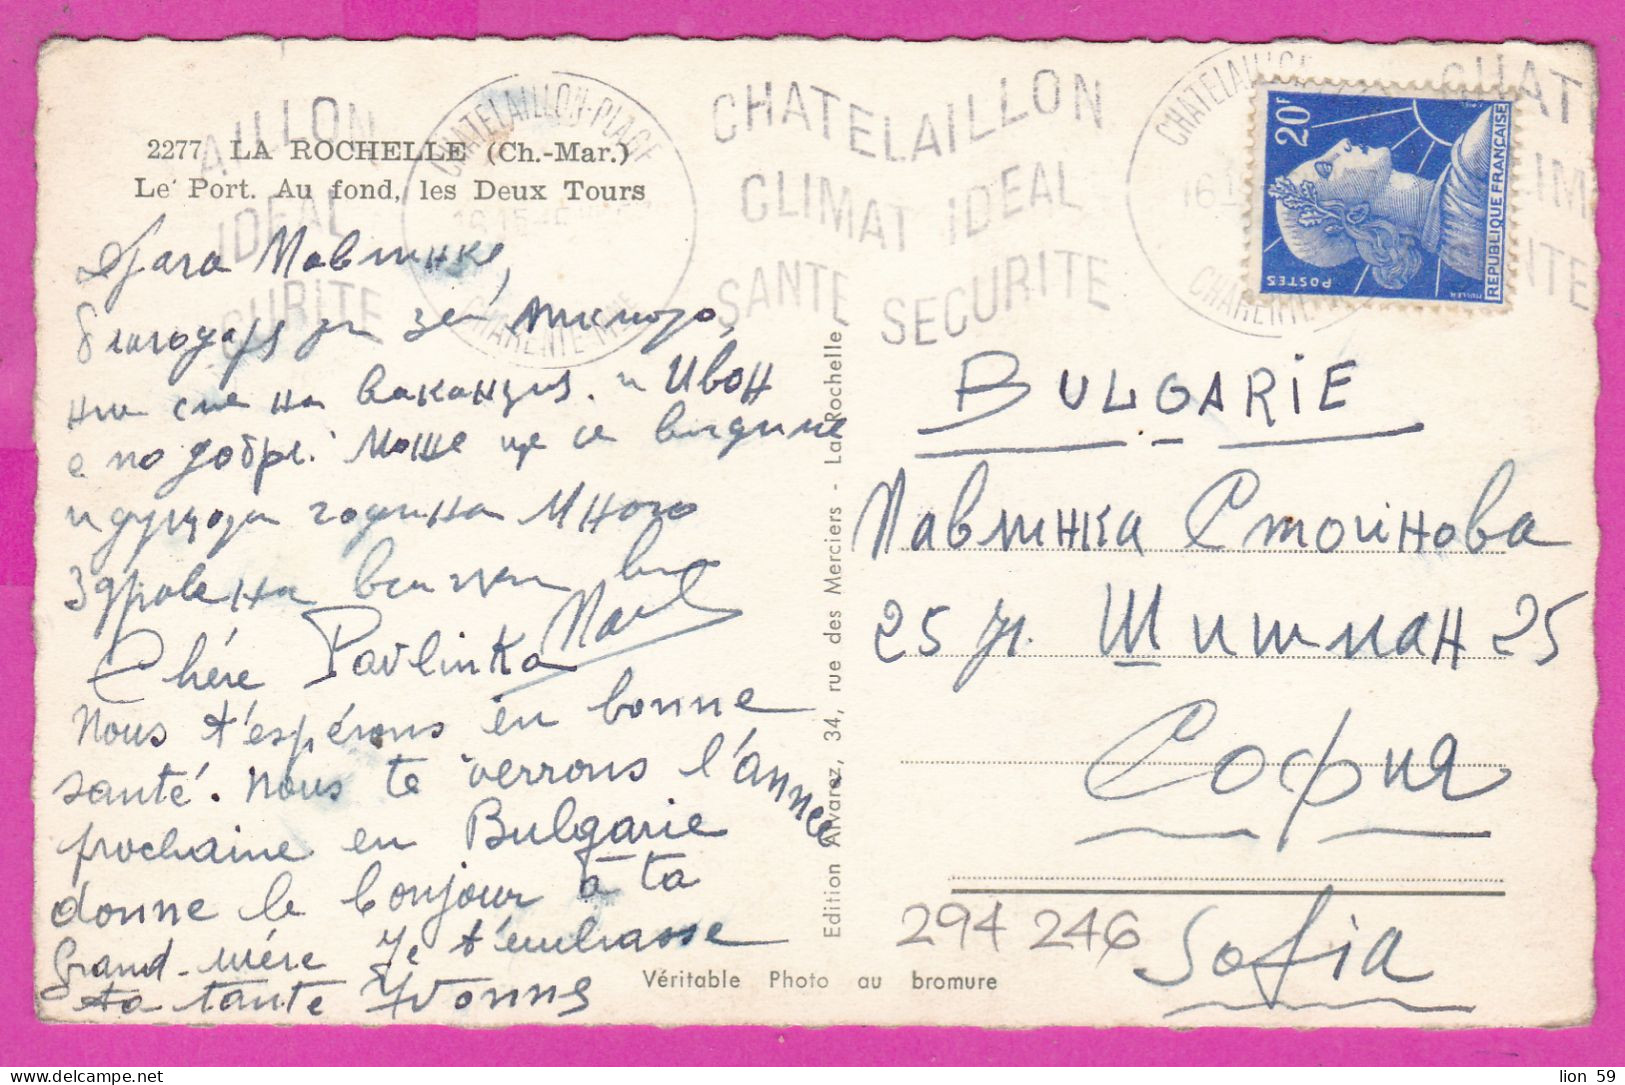 2277 LA ROCHELLE (Ch.-Mar.)
Le Port. Au fond, les Deux Tours
AILLON
IDEAL
CURITE
CHATELAILLON-PLAGE
CHARENTE-MME
CHATELAILLON
CLIMAT IDEAL
SANTE SECURITE
CHATELAILLON
16
CHARENTE
20F
POSTES
MULLER
REPUBLIQUE FRANÇAISE
Драга Павлинке,
благодаря за
ние сме на ваканция. и Ивон
е по добре. Може ще се видиме
идущата година Много
Здраве на
Chère Pavlinka
Nous t'espérons en bonne
santé. Nous te verrons l'année
prochaine en Bulgarie
donne le bonjour à ta
Grand-mère Je t'embrasse
ta tante Yvonne
Edition Alvarez, 34, rue des Merciers - La Rochelle
BULGARIE
Павлинка Стоинова
25 ул. Шишман 25
София
Sofia
294 246
Véritable Photo au bromure
lion 59